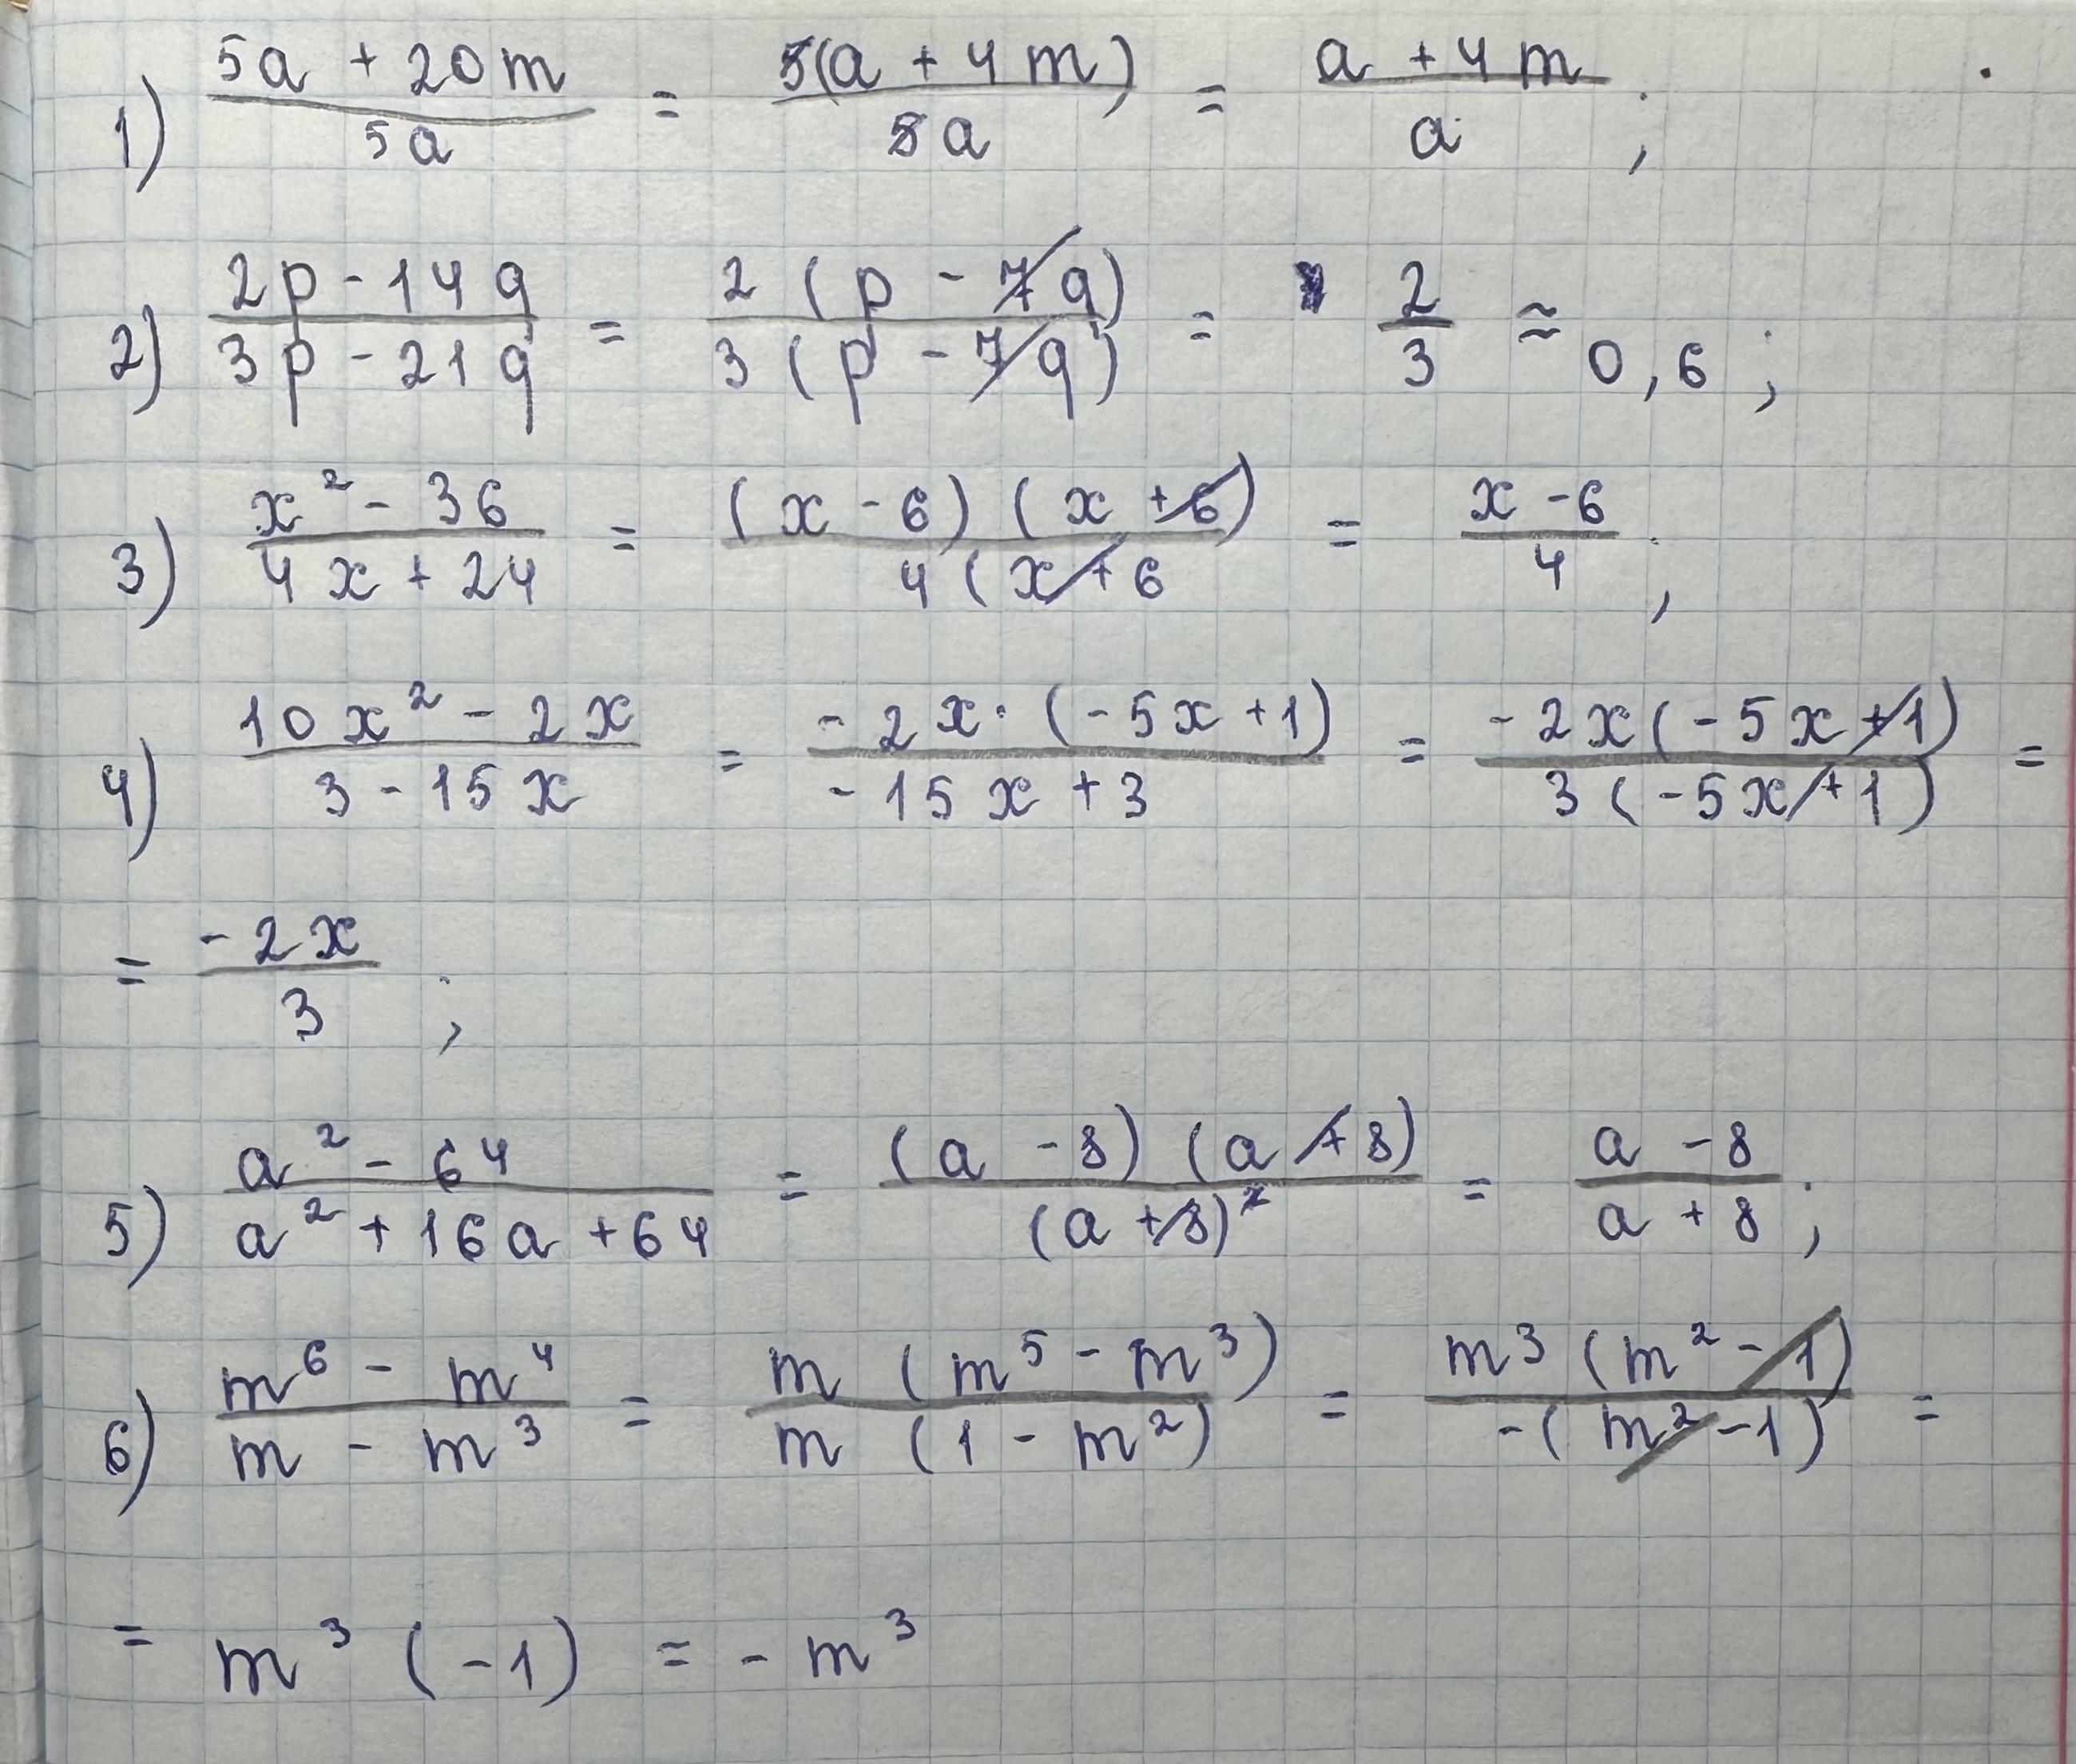 1) (5a + 20m)/(5a) = (5(a + 4m))/(5a) = (a + 4m)/a ;
2) (2p - 14q)/(3p - 21q) = (2(p - 7q))/(3(p - 7q)) = 2/3 ≈ 0,6 ;
3) (x² - 36)/(4x + 24) = ((x - 6)(x + 6))/(4(x + 6) = (x - 6)/4 ;
4) (10x² - 2x)/(3 - 15x) = (-2x·(-5x + 1))/(-15x + 3) = (-2x(-5x + 1))/(3(-5x + 1)) =
= (-2x)/3 ;
5) (a² - 64)/(a² + 16a + 64) = ((a - 8)(a + 8))/((a + 8)²) = (a - 8)/(a + 8) ;
6) (m⁶ - m⁴)/(m - m³) = (m(m⁵ - m³))/(m(1 - m²)) = (m³(m² - 1))/(-(m² - 1)) =
= m³(-1) = -m³